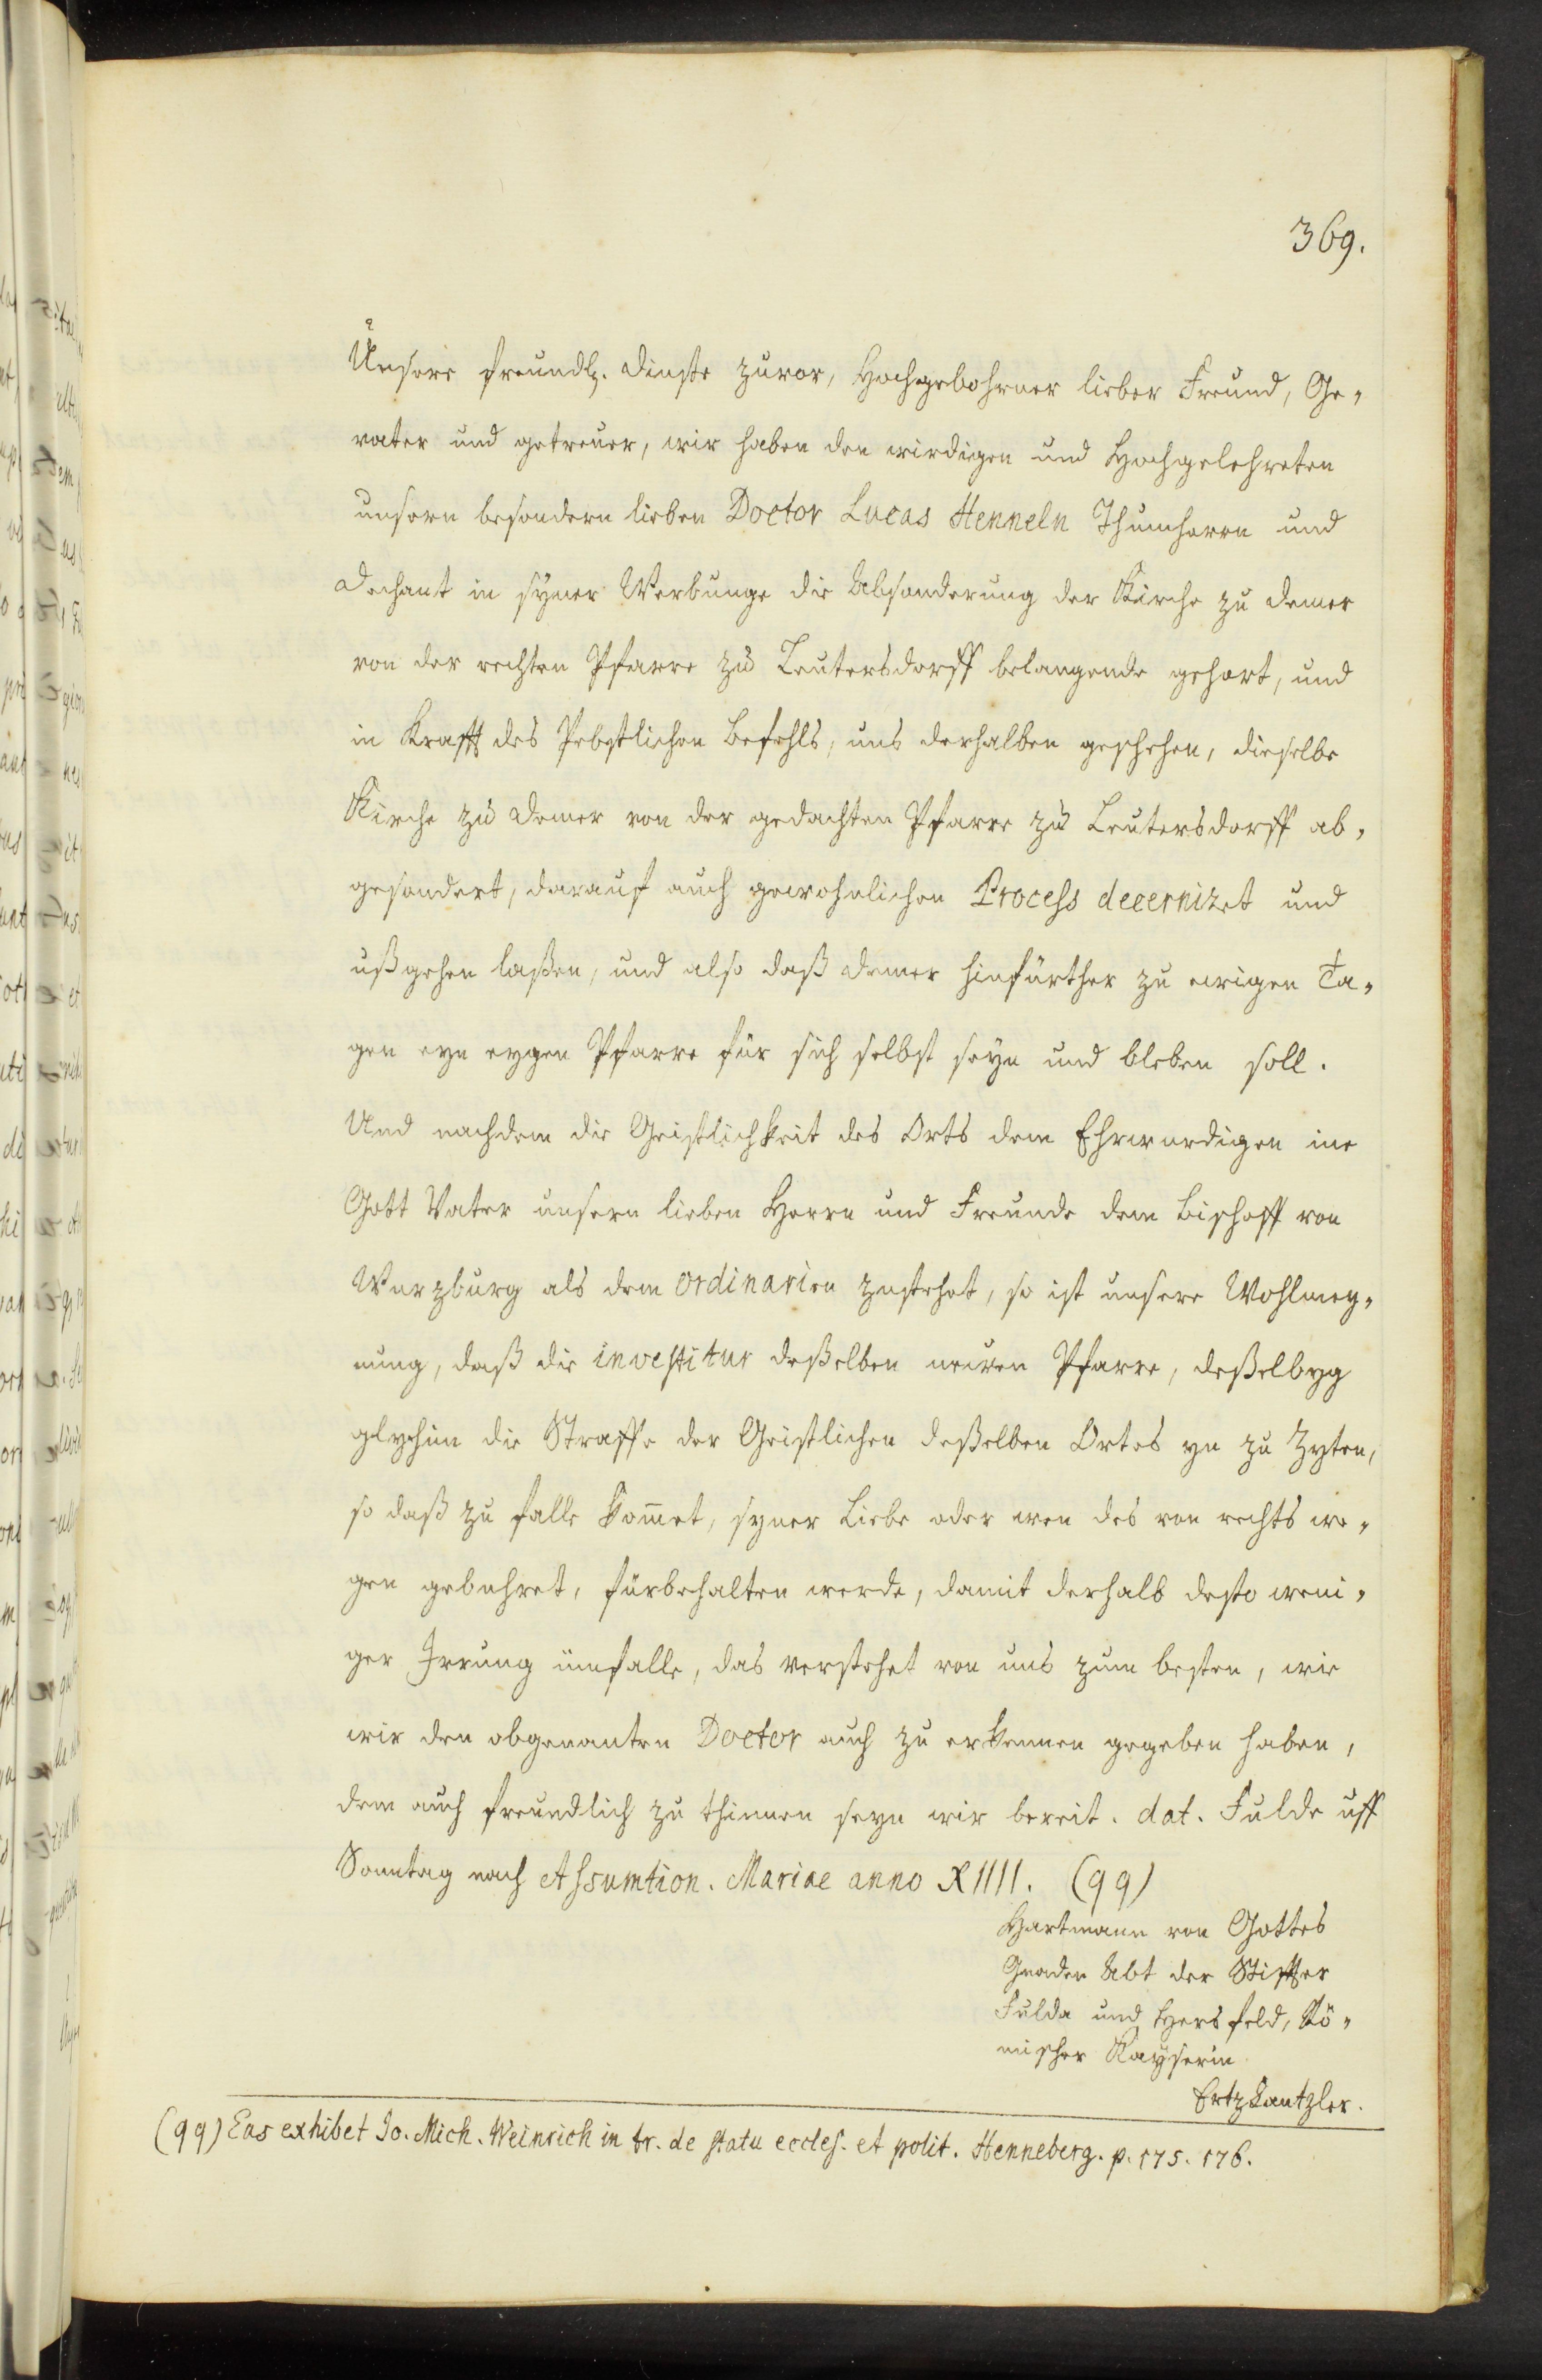 369.
Unsere freundlz. Dinste zuvor, Hochgebohrner lieber Freund, Ge-
vater und getreuer, wir haben den wirdigen und Hochgelehreten
unsern besondern lieben Doctor Lucas Henneln Thumherrn und
Dechant in syner Werbunge die Absonderung der Kirche zu Demer
von der rechten Pfarre zu Leutersdorff belangende gehort, und
in Krafft des Pebstlichen Befehls, uns derhalben geschehen, dieselbe
Kirche zu Demer von der gedachten Pfarre zu Leutersdorff ab-
gesondert, darauf auch gewohnlichen Process decernizet und
ußgehen laßen, und also daß Demer hinfürther zu ewigen Ta-
gen eyn eygen Pfarre für sich selbst seyn und bleben soll.
Und nachdem die Geistlichkeit des Orts dem Ehrwurdigen ine
Gott Vater unsern lieben Herrn und Freunde dem Bischoff von
Wurzburg als dem ordinarien zustehet, so ist unsere Wohlmey-
nung, daß die investitur deßelben neuen Pfarre, deßelbyg
glychim die Straffe der Geistlichen deßelben Ortes yn zu Zyten,
so daß zu falle kom̅et, syner Liebe oder wen des von rechts we-
gen gebuhret, fürbehalten werde, damit derhalb desto weni-
ger Irrung ümfalle, das verstehet von uns zum besten, wie
wir den obgenanten Doctor auch zu erkennen gegeben haben,
dem auch freundlich zu thinnen seyn wir bereit. dat. Fulde uff
Sonntag nach Assumtion. Mariae anno XIIII. (qq)
Hartmann von Gottes
Gnaden Abt der Stiffter
Fulda und Hersfeld, Rö-
mischer Kayserin
Ertzkantzler.
(qq) Eas exhibet Jo. Mich. Weinrich in tr. de statu eccles. et polit. Henneberg. p. 175. 176.